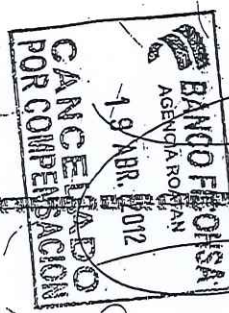 BANCO FICOHSA
AGENCIA ROATAN
19 ABR. 2012
CANCELADO
POR COMPENSACION